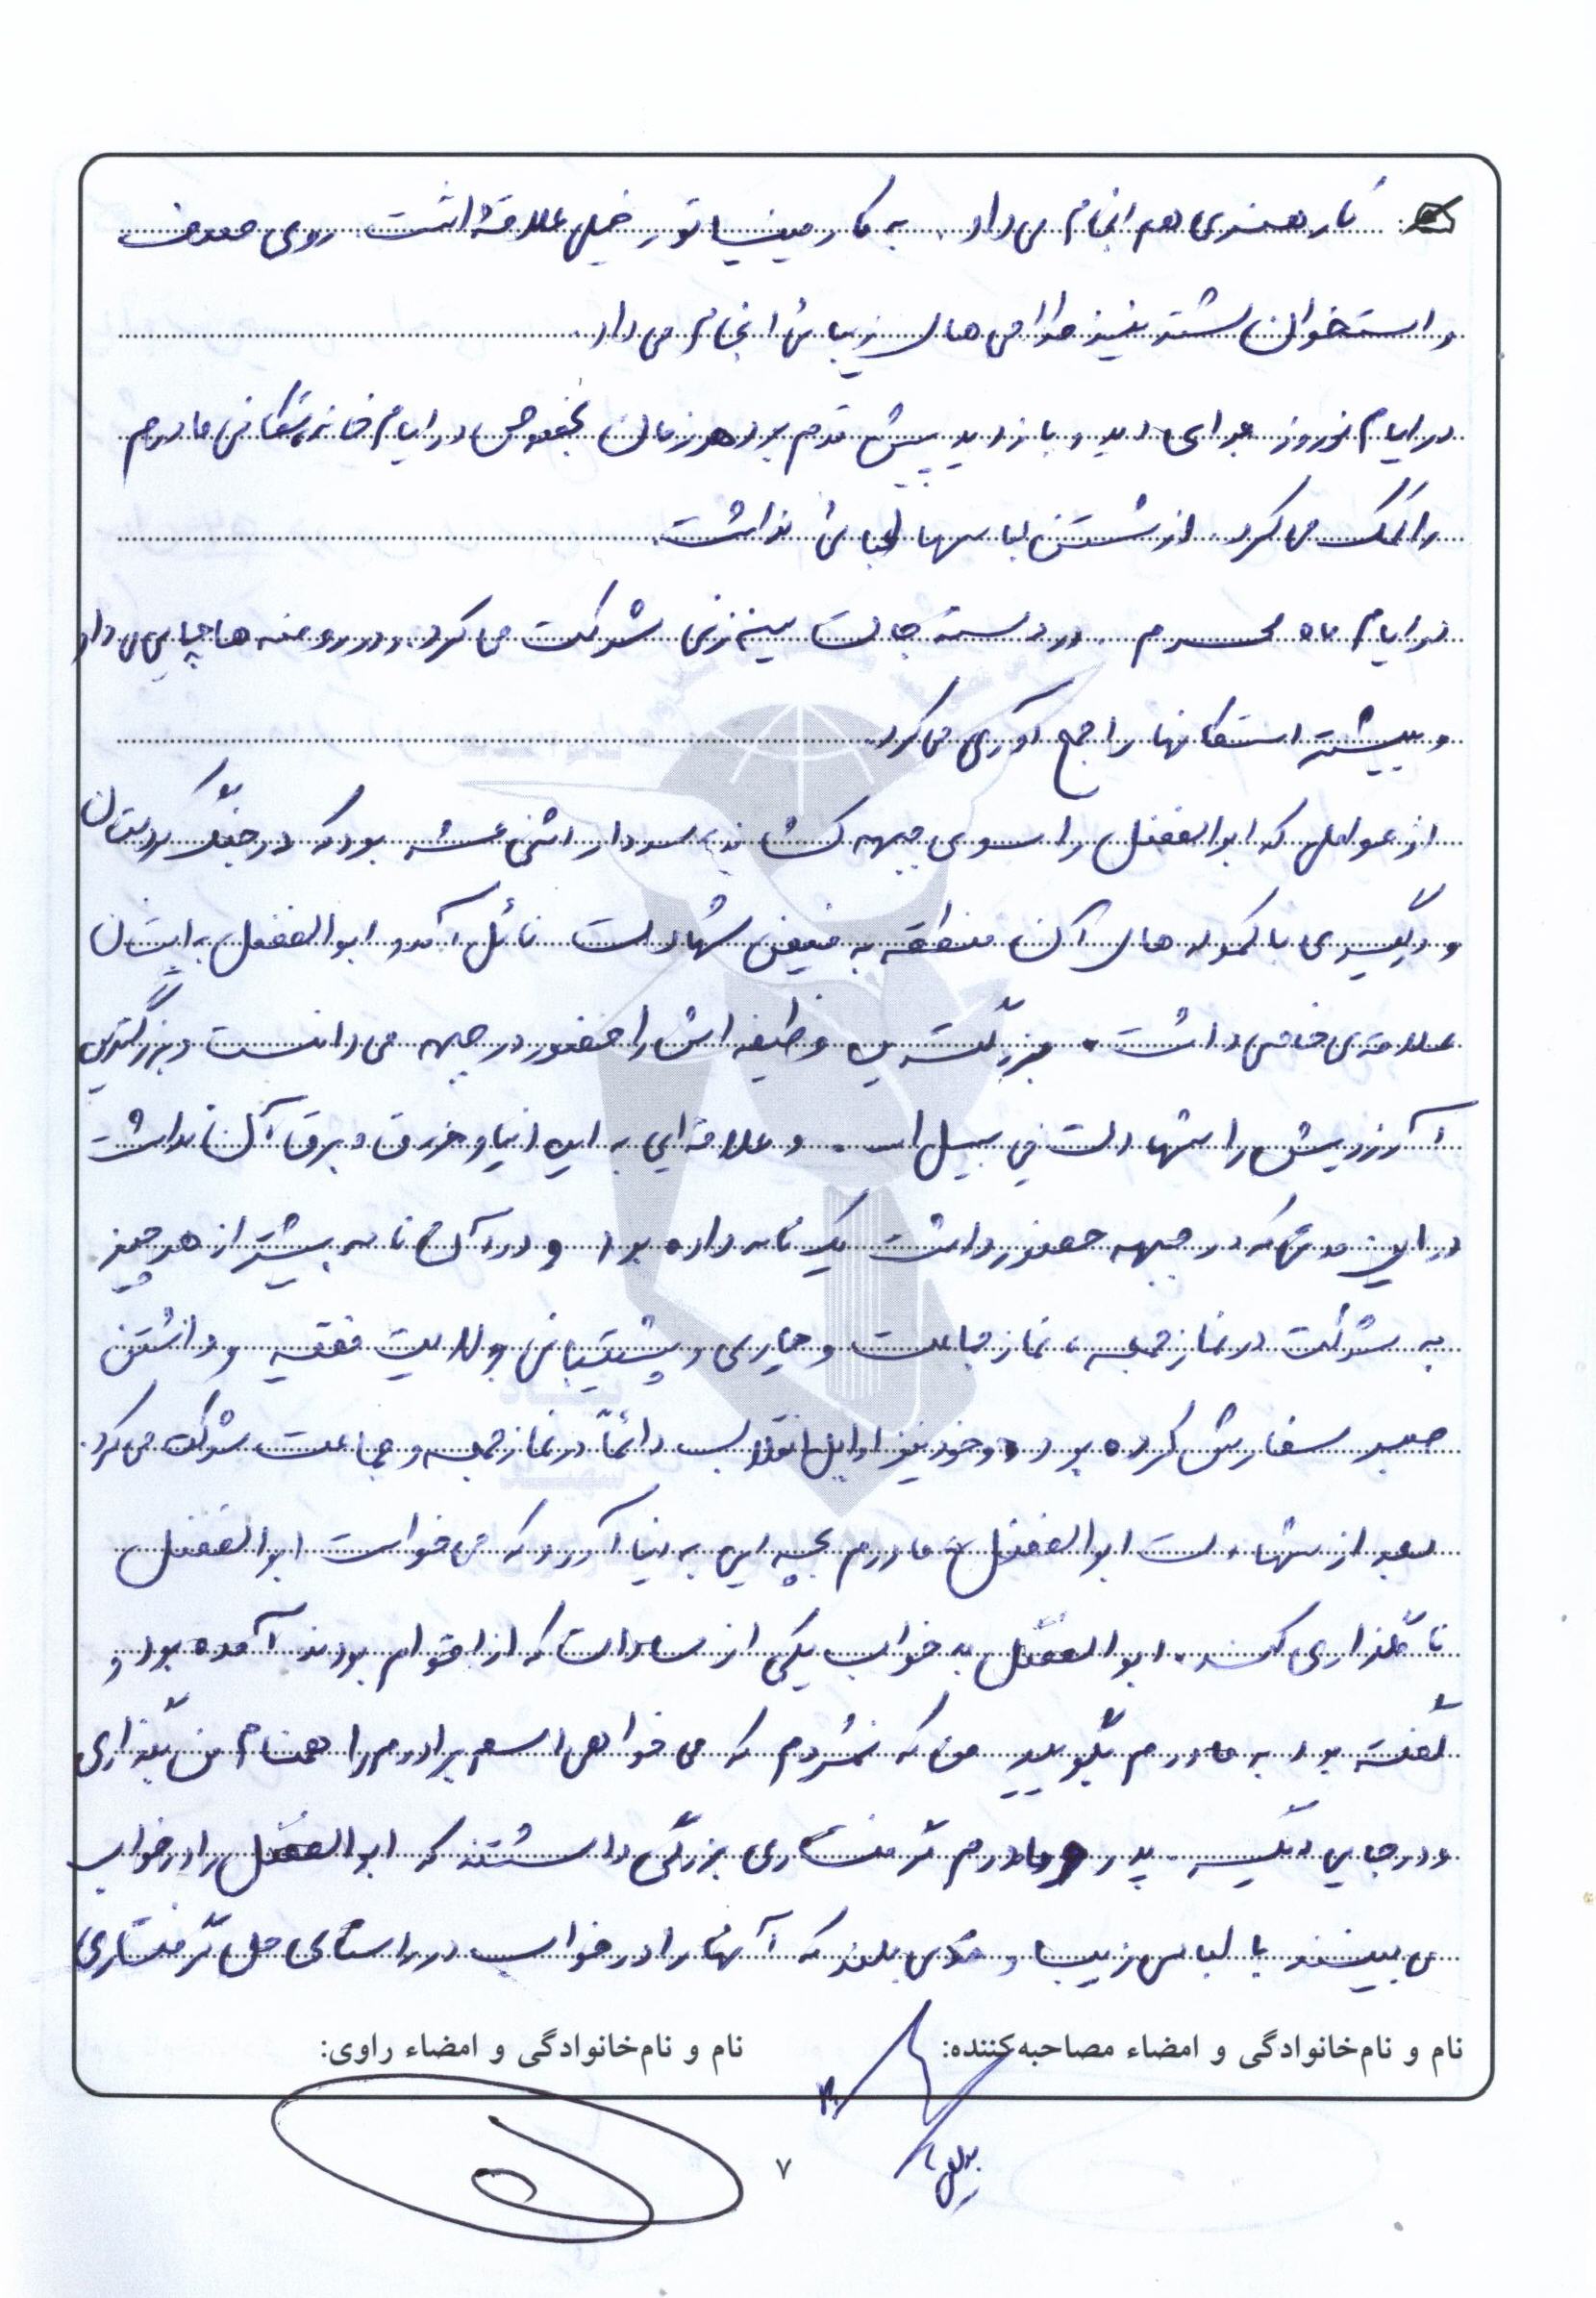 کار هنری هم انجام می داد. به کار مینیاتور خیلی علاقه داشت. روی صدف
و استخوان شتر نیز طراحی های زیبایی انجام می داد.
در ایام نوروز برای دید و بازدید پیش قدم بود هر زمان بخصوص در ایام خانه تکانی مادرم
را کمک می کرد. از شستن لباسها ابائی نداشت.
در ایام ماه محرم در دسته جات سینه زنی شرکت می کرد. و در روضه ها چایی می داد
و بیشتر استکانها را جمع آوری می کرد.
از عواملی که ابوالفضل را سوی جبهه کشاند، سردار اثنی عشر بود که در جنگ کردستان
و درگیری با کموله های آن منطقه به فیض شهادت نائل آمد و ابوالفضل به ایشان
علاقه ی خاصی داشت. بزرگترین وظیفه اش را حضور در جبهه می دانست و بزرگترین
آرزویش را شهادت فی سبیل الله. و علاقه ایی به این دنیا و زرق و برق آن نداشت
در این مدتی که در جبهه حضور داشت یک نامه داده بود و در آن نامه بیشتر از هر چیز
به شرکت در نماز جمعه، نماز جماعت و همیاری و پشتیبانی ولایت فقیه و داشتن
صبر سفارش کرده بود و خود نیز اوایل انقلاب دائماً در نماز جمعه و جماعت شرکت می کرد.
بعد از شهادت ابوالفضل مادرم بچه ایی به دنیا آورد که می خواست ابوالفضل
نامگذاری کند. ابوالفضل به خواب یکی از سادات که از اقوام بودند آمده بود و
گفته بود به مادرم بگویید من که نمردم که می خواهی اسم برادرم را همنام من بگذاری
و در جایی دیگر پدر و مادرم گرفتاری بزرگی داشتند که ابوالفضل را در خواب
می بینند با لباس زیبا و قدی بلند که آنها را در خواب در راستای حل گرفتاری
نام و نام‌خانوادگی و امضاء مصاحبه‌کننده:
نام و نام‌خانوادگی و امضاء راوی:
۷